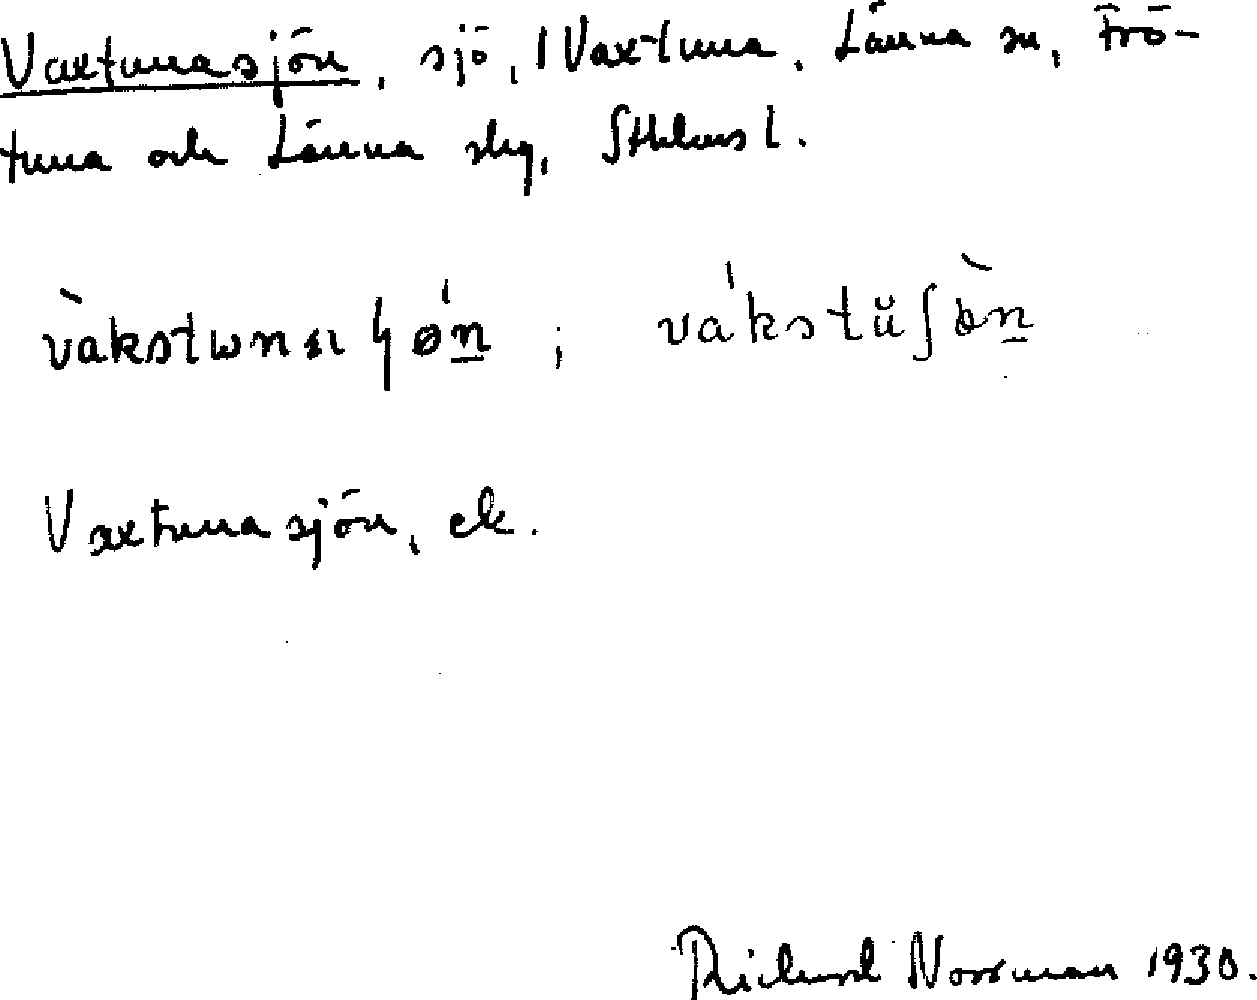 Vaxtunasjön, sjö, / Vaxtuna, Länna sn, Frö-
tuna och Länna skg, Sthlms l.
vàkstɯnaɧǿn̲ ; vákstüʃøn̲
Vaxtunasjön, ek.
Richard Norrman 1930.